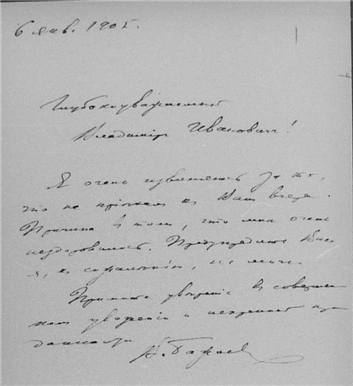 6 янв. 1905.
Глубокоуважаемый
Владимiръ Ивановичъ!
Я очень извиняюсь за то,
что не прiѣхалъ къ Вамъ вчера.
Причина въ томъ, что мнѣ очень
нездоровилось. Предупредить Вас
я, къ сожалѣнiю, не могъ.
Примите увѣренiе въ совершен
номъ уваженiи и искренней пре
данности